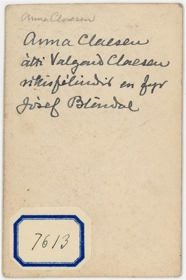 Anna Claesen
Anna Claesen
átti Valgard Claesen
en fyr
Jósef Blöndal
7613